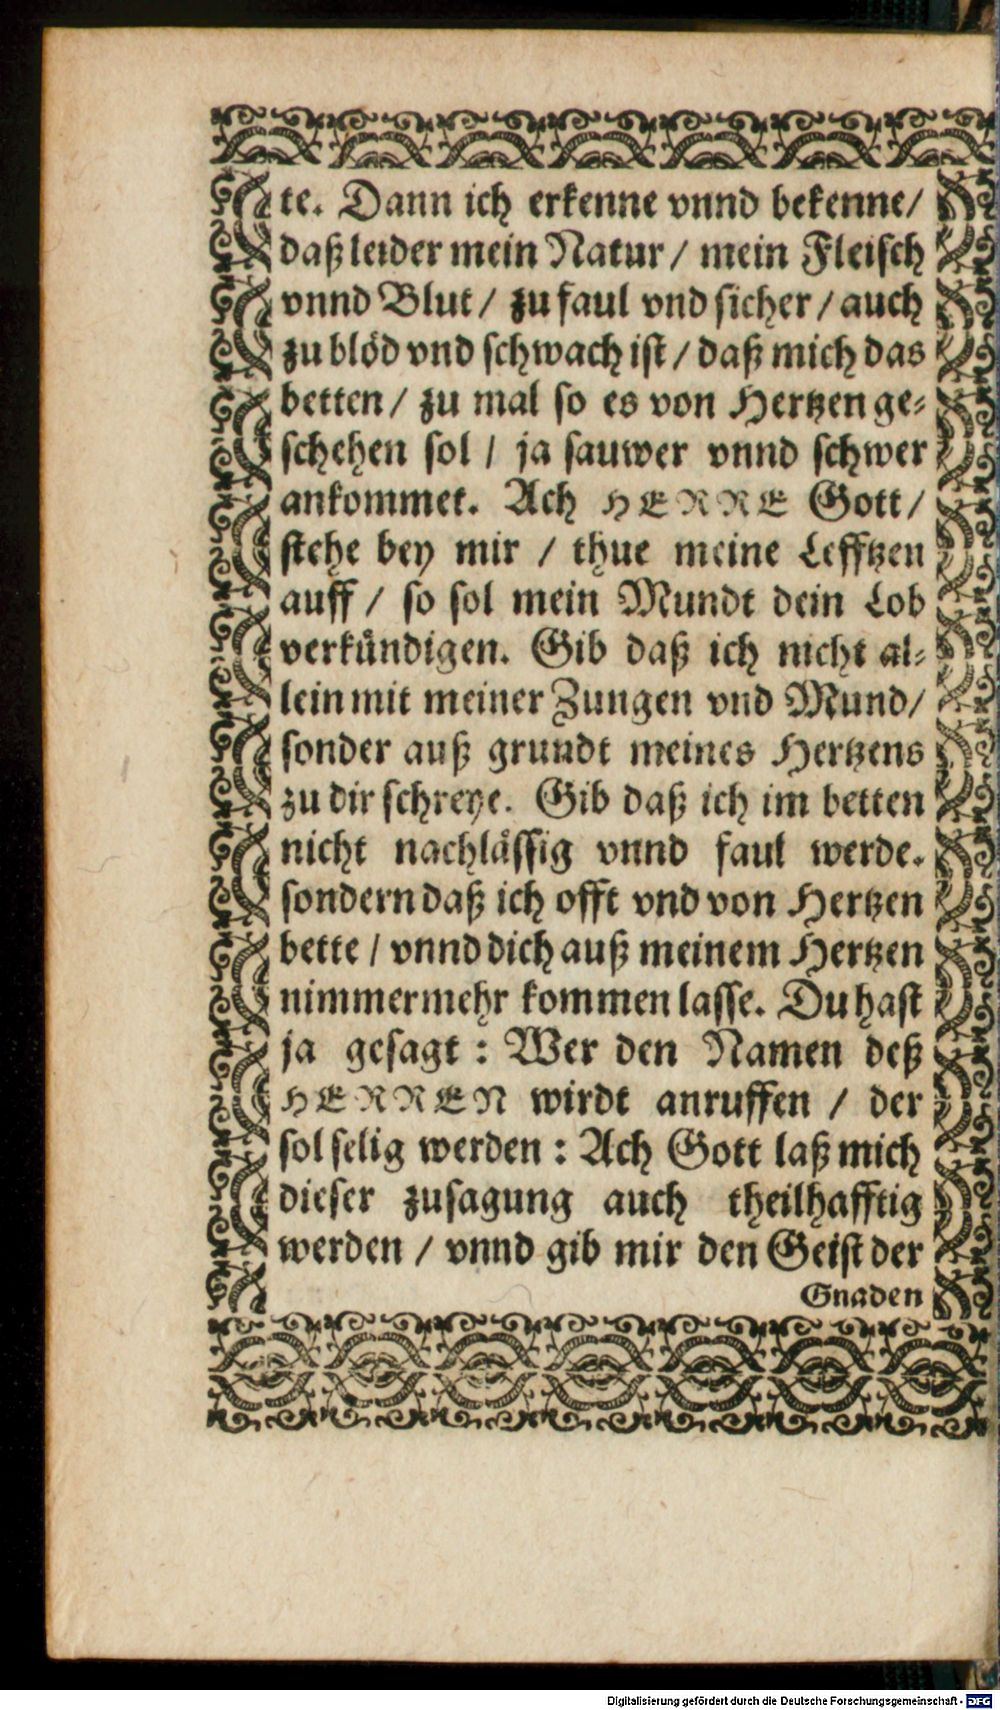 te. Dann ich erkenne vnnd bekenne/
daß leider mein Natur / mein Fleisch
vnnd Blut / zu faul vnd sicher / auch
zu blöd vnd schwach ist / daß mich das
betten / zu mal so es von Hertzen ge-
schehen sol / ja sauwer vnnd schwer
ankommet. Ach HERRE Gott/
stehe bey mir / thue meine Lefftzen
auff / so sol mein Mundt dein Lob
verkündigen. Gib daß ich nicht al-
lein mit meiner Zungen vnd Mund/
sonder auß grundt meines Hertzens
zu dir schreye. Gib daß ich im betten
nicht nachlässig vnnd faul werde.
sondern daß ich offt vnd von Hertzen
bette / vnnd dich auß meinem Hertzen
nimmermehr kommen lasse. Du hast
ja gesagt : Wer den Namen deß
HERREN wirdt anruffen / der
sol selig werden : Ach Gott laß mich
dieser zusagung auch theilhafftig
werden / vnnd gib mir den Geist der
Gnaden
Digitalisierung gefördert durch die Deutsche Forschungsgemeinschaft - DFG